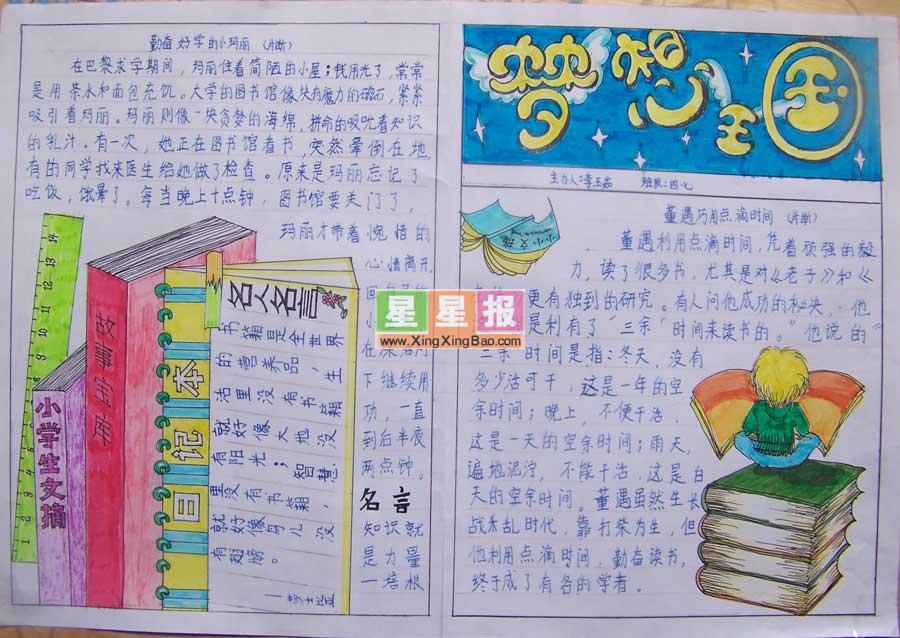 勤奋好学的小玛丽 (片断)
在巴黎求学期间，玛丽住着简陋的小屋；钱用光了，常常
是用茶水和面包充饥。大学的图书馆像块有魔力的磁石，紧紧
吸引着玛丽。玛丽则像一块贪婪的海绵，拼命的吸吮着知识
的乳汁。有一次，她正在图书馆看书，突然晕倒在地，
有的同学找来医生给她做了检查。原来是玛丽忘记了
吃饭，饿晕了。每当晚上十点钟，图书馆要关门了，
玛丽才带着惋惜的
心情离开，
下继续用
功，一直
到后半夜
两点钟。
名言
知识就
是力量
一培根
小学生文摘
故事宝库
日记本
名人名言
书籍是全世界
的营养品，生
活里没有书籍
就好像大地没
有阳光；智慧
里没有书籍，
就好像鸟儿没
有翅膀。
—莎士比亚
梦想王国
主办人:李玉茹 班级:四.七
小小文摘
董遇巧用点滴时间 (片断)
董遇利用点滴时间，凭着顽强的毅
力，读了很多书，尤其是对《老子》和《
更有独到的研究。有人问他成功的秘决，他
是利有了“三余”时间来读书的。”他说的“
三余”时间是指：冬天，没有
多少活可干，这是一年的空
余时间；晚上，不便干活，
这是一天的空余时间；雨天，
遍地泥泞，不能干活，这是白
天的空余时间。董遇虽然生长
战乱时代，靠打柴为生，但
他利用点滴时间，勤奋读书，
终于成了有名的学者。
星星报
www.XingXingBao.com